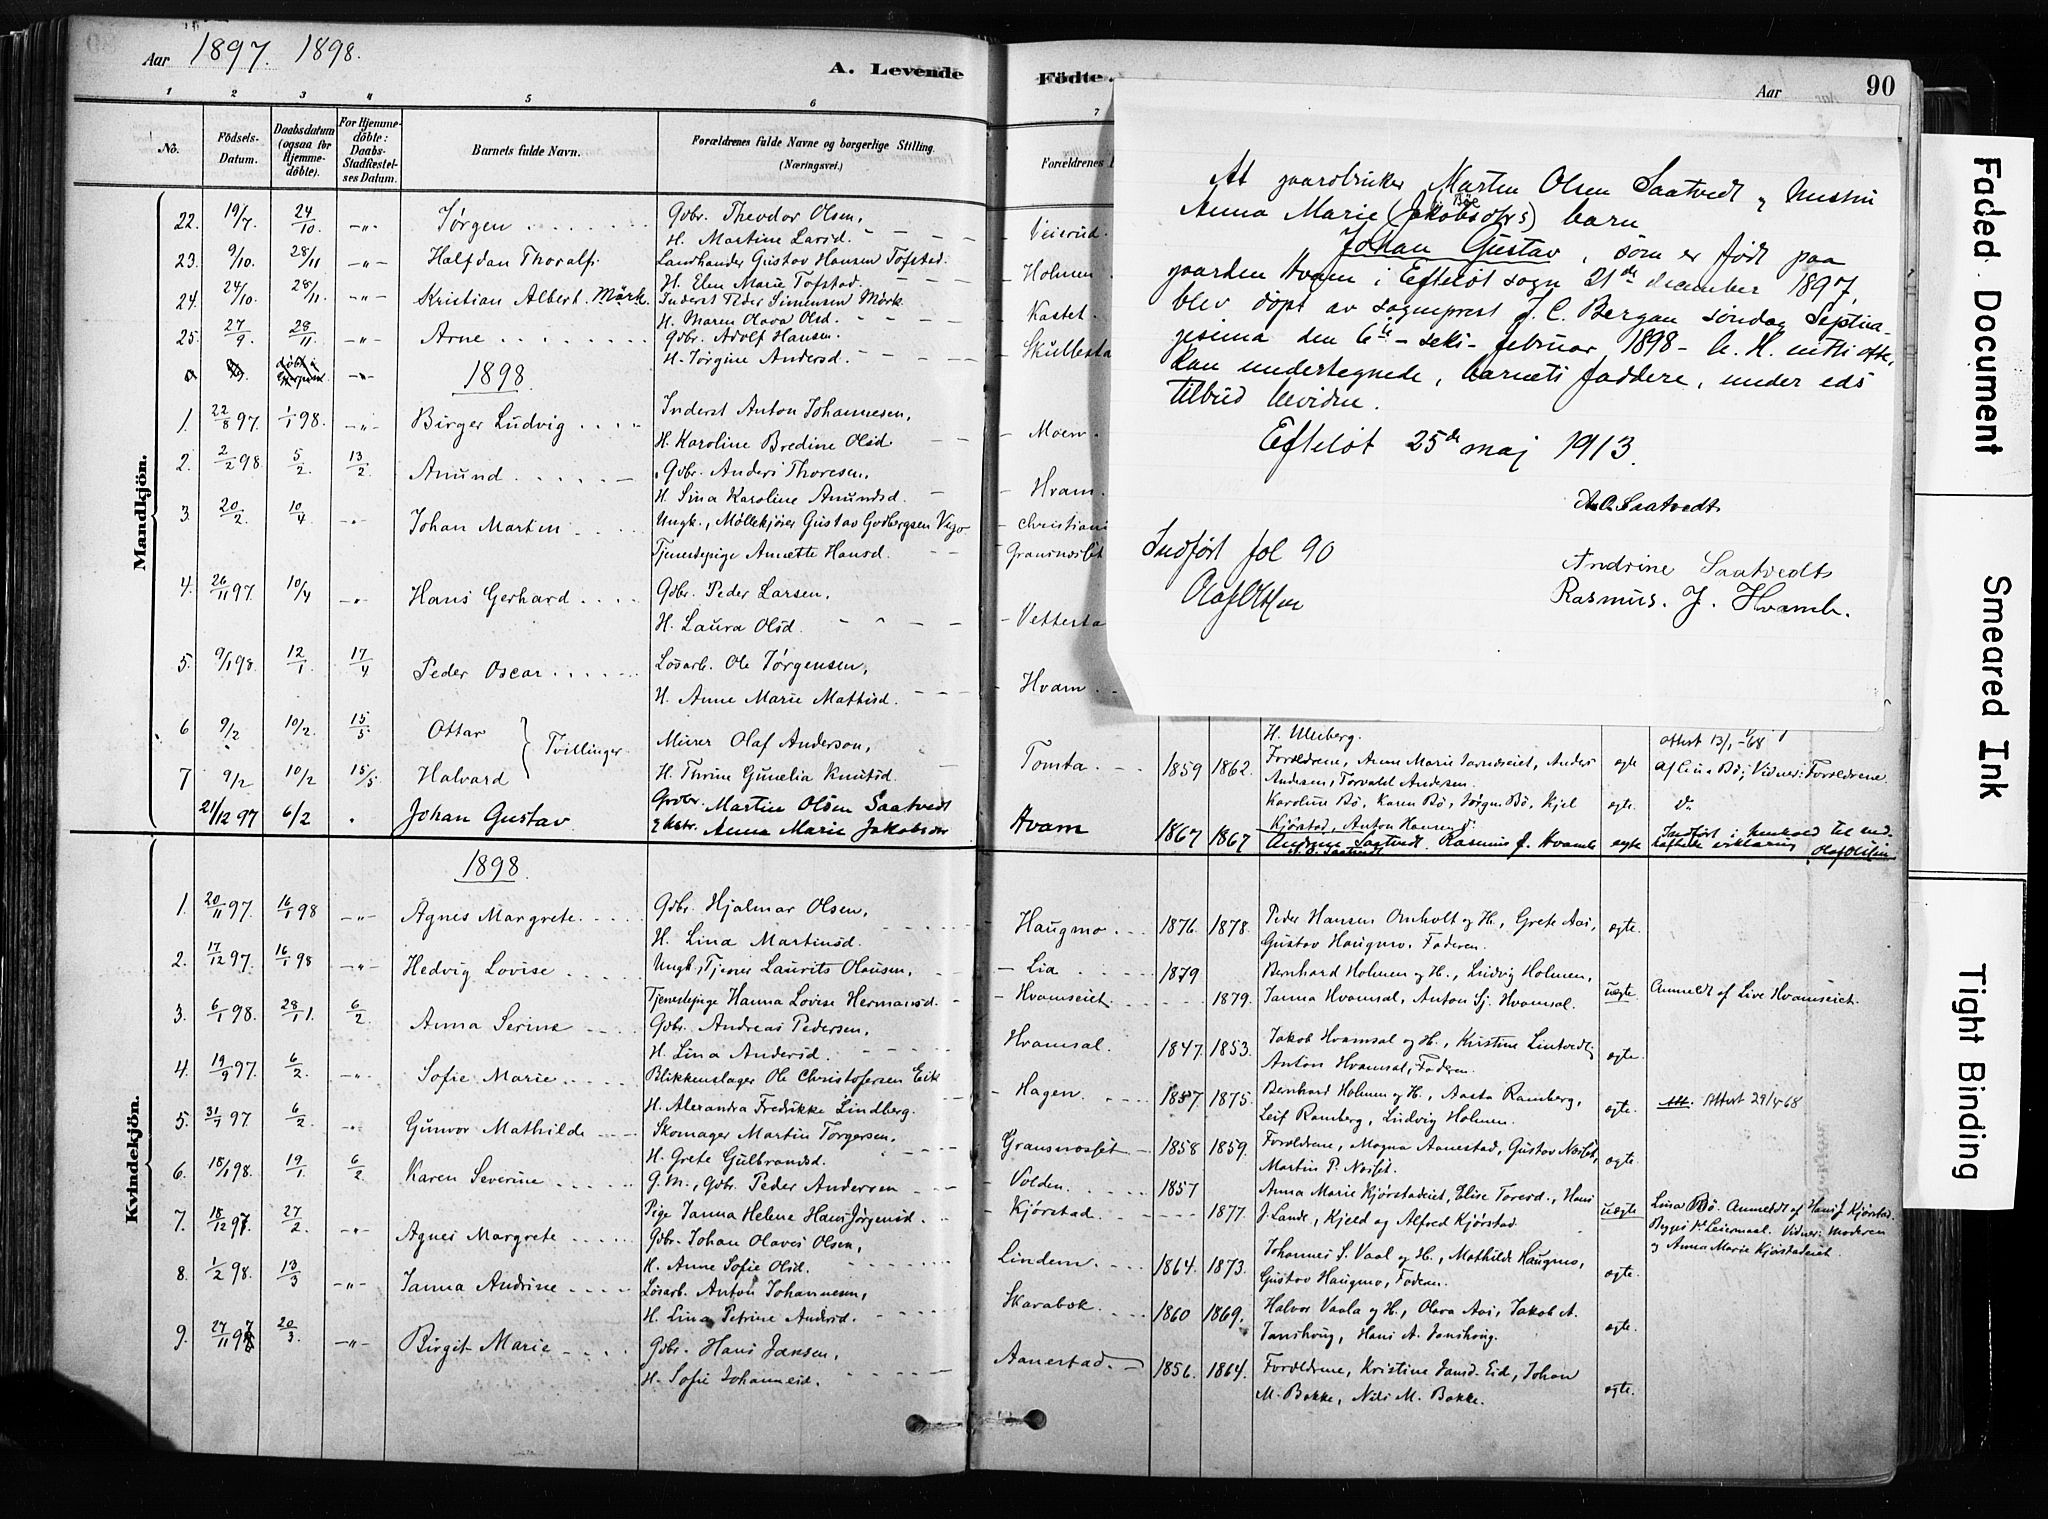 Aar 1897. 1898.
A. Levende
Födte.
Aar
90
1 2 3 4 5 6 7
No.
Födsels-Datum.
Daabsdatum (ogsaa for Hjemme-döbte).
For Hjemme-döbte: Daabs-Stadfæstel-ses Datum.
Barnets fulde Navn.
Forældrenes fulde Navne og borgerlige Stilling. (Næringsvei.)
Forældrenes
Mandkjön.
22. 19/7 24/10 -"- Jørgen Gbr. Theodor Olsen, Veierud.
H. Martine Larsd.
23. 9/10. 28/11 -"- Halfdan Thoralf. Landhandler Gustav Hansen Tofsted. Holmen
H. Elen Marie Tofstad.
24. 24/10. 28/11. -"- Kristian Albert Mörk. Inderst Peder Simensen Mörk Kastet
H. Maren Olava Olsd.
25. 27/9. 28/11 -"- Arne Gbr. Adolf Hansen. Skullesta
H. Jørgine Andersd.
1898.
1. 22/8 97. 1/1 98. -"- Birger Ludvig Inderst Anton Johannesen, Moen.
H. Karoline Bredine Olsd
2. 2/2 98. 5/2 13/2 Anund Gbr. Anders Thoresen, Hvam.
H. Lina Karoline Anundsd.
3. 20/2 10/4 -"- Johan Martin Ungk., Møllekjører Gustav Godbergsen Vego Christiani
Tjenestepige Anætte Hansd. Gransnosset
4. 26/11 97. 10/4 -"- Hans Gerhard Gbr. Peder Larsen,
H. Laura Olsd. Vettesta
5. 9/1 98. 12/1 17/4 Peder Oscar Løsarb. Ole Jørgensen,
H. Anne Marie Mathisd. Hvam
6 9/2 10/2. 15/5 Ottar } Tvillinger Murer Olaf Anderson,
7 9/2 10/2 15/5 Halvard H. Thrine Gunelia Knutsd. Tomta
21/12 97 6/2 Johan Gustav Grbr. Martin Olsen Saatvedt Hvam
Anna Marie Jakobsdtr
H. Ulleberg.
1859 1862. Forældrene, Anne Marie Anders Andersen, Torvald Andersen. ægte Vidner: Forældrene.
Karoline Bø, Karen Bø, Jørgen Bø, Kjel Kjørstad, Anton Hansen ægte.
1867 1867 Andrine Saatvedt. Rasmus J. Hvamb A. O. Saatvedt ægte Indført i henhold til vedheftede erklæring Olaf Olsen
At gaardbruker Martin Olsen Saatvedt og hustru
Anna Marie (Jakobsdtrs) Bøe barn
Johan Gustav, som er født paa
gaarden Hvam i Efteløt sogn 21de december 1897,
blev døpt av sogneprest J. C. Bergan søndag Septua-
gesima den 6te - seks - februar 1898 - A. H. nitti otte,
kan undertegnede, barnets faddere, under eds
tilbud bevidne.
Efteløt 25de maj 1913.
A. O. Saatvedt
Andrine Saatvedt
Rasmus. J. Hvamb.
Indført fol 90
Olaf Olsen
Kvindekjön.
1898.
1. 20/11 97. 16/1 98 -"- Agnes Margrete Gbr. Hjalmar Olsen, Haugmo 1876. 1878. Peder Hansen Omholt og H., Grete Aas, ægte.
H. Lina Martinsd. Gustav Haugmo, Faderen.
2. 17/12 97. 16/1 98 -"- Hedvig Lovise Ungk., Tjener Laurits Olausen, Lia 1879 Bernhard Holmen og H., Ludvig Holmen,
Tjenestepige Hanna Lovise Hermansd. Hvamseiet 1879. Janna Hvamsal, Anton Sj. Hvamsal. uægte Anmeldt af Live Hvamseiet.
3. 6/1 98. 28/1. 6/2 Anna Serine Gbr. Andreas Pedersen, Hvamsal. 1847. 1853. Jakob Hvamsal og H., Kristine Lintvedt, ægte.
H. Lina Andersd. Anton Hvamsal, Faderen.
4. 19/9 97. 6/2 -"- Sofie Marie Blikkenslager Ole Christofersen Eek Hagen. 1857. 1875. Bernhard Holmen og H., Aasta Ramberg, ægte. Attest 29/4 68
H. Alexandra Fredrikke Lindberg. Leif Ramberg, Ludvig Holmen.
5. 31/7 97. 6/2 -"- Gunvor Mathilde Skomager Martin Torgersen, Gransnosset 1858 1859. Forældrene, Magna Aanestad, Gustav Nosset, ægte.
H. Grete Gulbrandsd. Martin P. Nosset.
6. 18/1 98. 19/1 6/2 Karen Severine G. M., Gbr. Peder Andersen Volden. 1857 Anna Marie Kjørstadeiet, Elise Toresd., Hans
Pige Janna Helene Hans Jørgensd. Kjørstad. 1877. J. Lande, Kjeld og Alfred Kjørstad uægte Lina Bø. Anmeldt af Hans J. Kjørstad.
Vidner: Moderen og Anna Marie Kjørstadeiet.
7. 18/12 97. 27/2 -"- Agnes Margrete Gbr. Johan Olaves Olsen, Lindem 1864. 1873. Johannes S. Vaal og H., Mathilde Haugmo, ægte.
H. Anne Sofie Olsd. Gustav Haugmo, Faderen.
8. 1/2 98. 13/3 -"- Janna Andrine Løsarb. Anton Johannesen, Skarabok 1860 1869. Halvor Vaala og H., Olava Aas, Jakob A. ægte.
H. Lina Petrine Andersd. Janshoug, Hans A. Janshoug.
9. 27/11 97 20/3 -"- Birgit Marie Gbr. Hans Jansen, Aanestad. 1856. 1864. Forældrene, Kristine Eid, Johan ægte.
H. Sofie Johannesd. M. Bakke, Nils M. Bakke.
Faded Document
Smeared Ink
Tight Binding